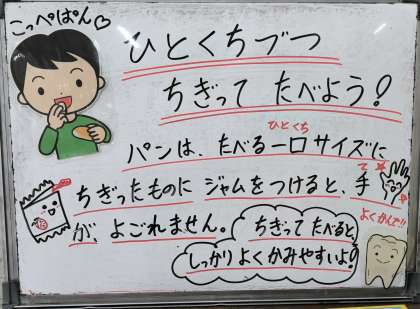 こっぺぱん♡
ひとくちづつ
ちぎって たべよう!
パンは、たべる一口サイズに
ひとくち
ちぎったものに ジャムをつけると、手
て
が、よごれません。
よくかんで!!
ちぎって たべると、
しっかり よくかみやすいよ!